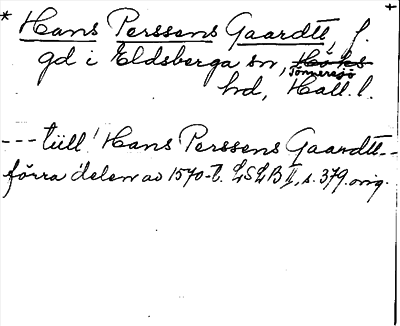 * Hans Perssens Gaardtt, f. +
gd i Eldsberga sn, Höks
Tönnersjö
hd, Hall. l.
--- tüll Hans Perssens Gaardtt--
förra delen av 1570-t. LSLB II, s. 379. orig.